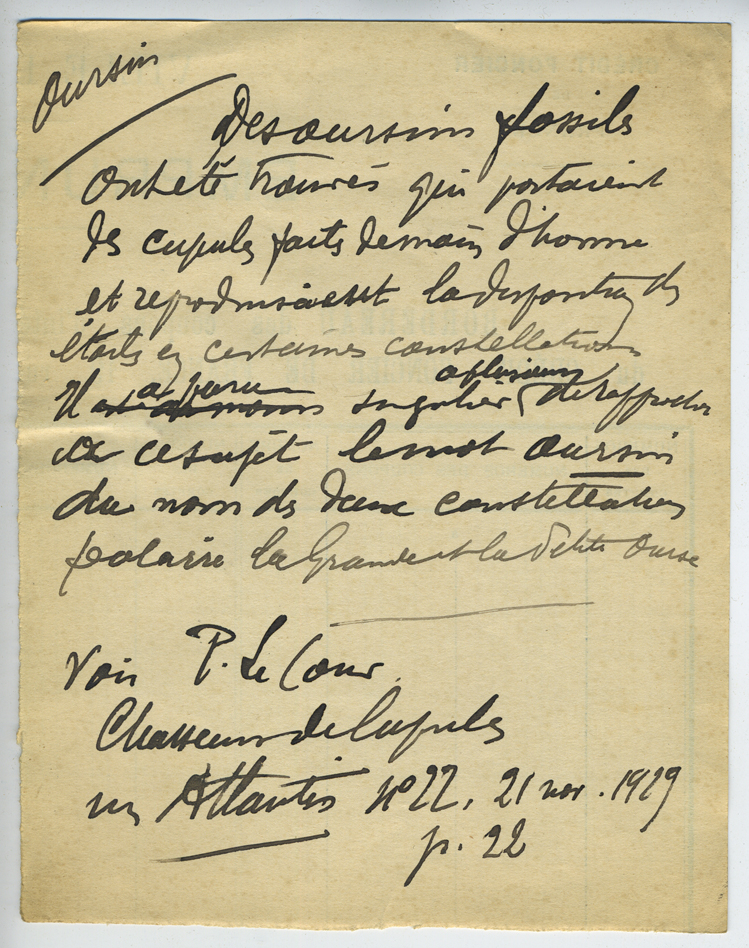 Oursin
Des oursins fossiles
ont été trouvés qui portaient
des cupules faits de main d'homme
et reproduisaient la disposition des
étoiles en certaines constellations
Il a paru à plusieurs
singulier de rapprocher
à ce sujet le mot oursin
du nom des deux constellations
polaires la Grande et la Petite Ourse
Voir P. Le Cour
Chasseurs de Cupules
in Atlantis n° 22, 21 nov. 1929
p. 22